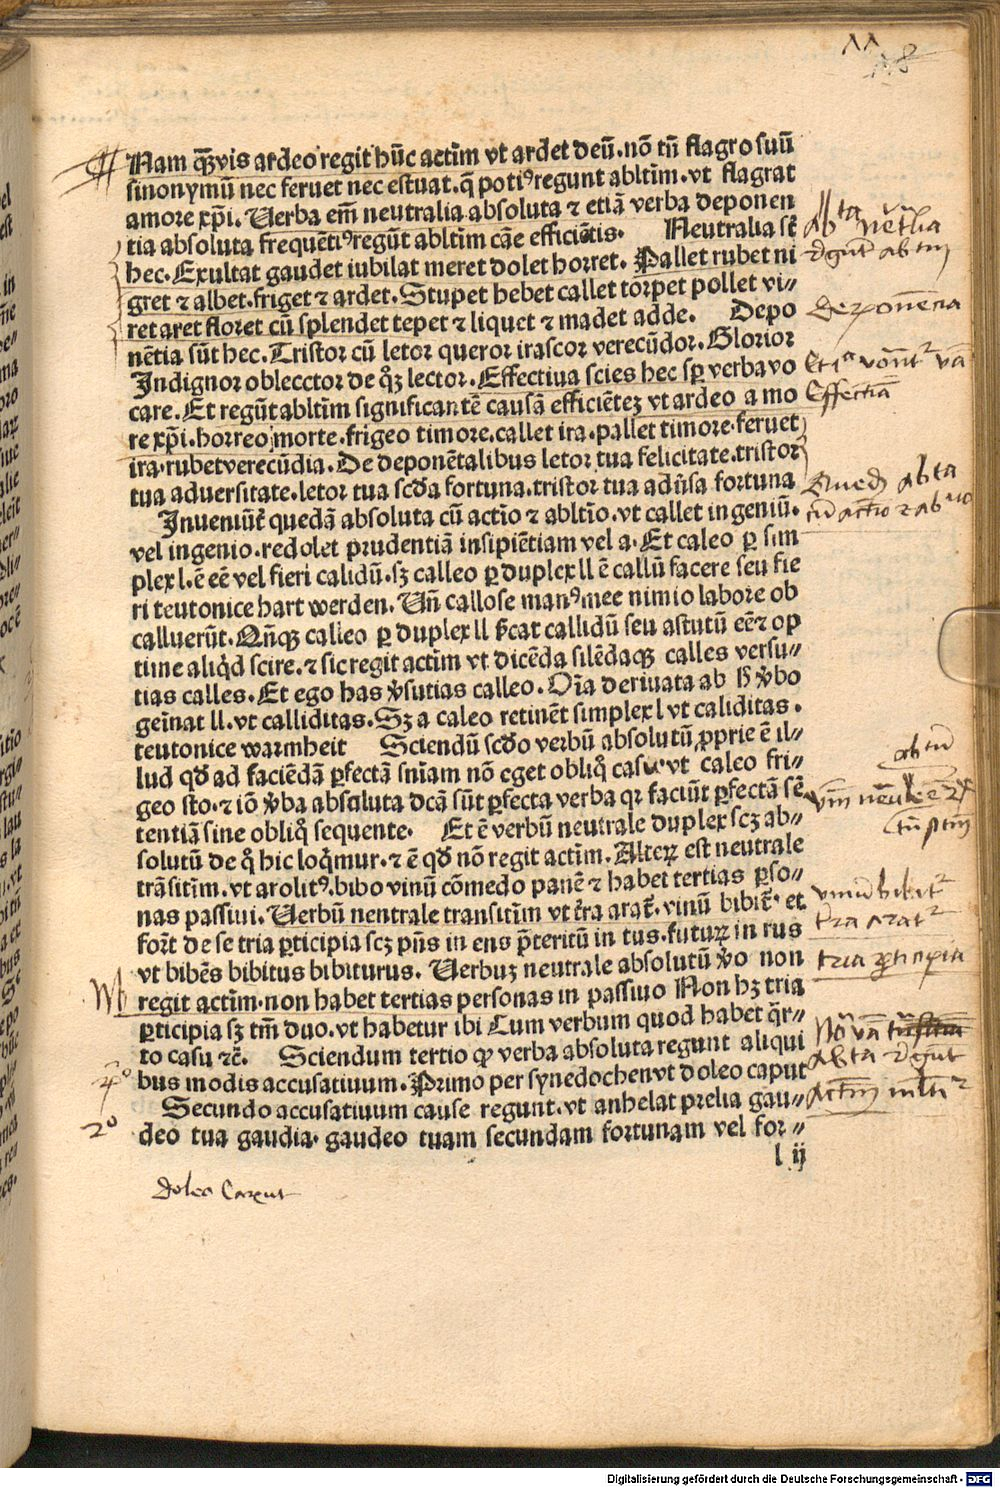 Nam q̄ȝvis ardeo regit hūc actīm vt ardet deū. nō tū flagro suū
sinonymū nec feruet nec estuat. q̄ poti⁹ regunt abltīm. vt flagrat
amore xp̄i. Uerba em̄ neutralia absoluta ⁊ etiā verba deponen
tia absoluta frequēti⁹ regūt abltīm cāe efficiētis. Neutralia st̄
hec. Exultat gaudet iubilat meret dolet horret. Pallet rubet ni
gret ⁊ albet. friget ⁊ ardet. Stupet hebet callet torpet pollet vi⸗
ret aret floret cū splendet tepet ⁊ liquet ⁊ madet adde. Depo
nētia sūt hec. Tristor cū letor queror irascor verecūdor. Glorior
Indignor oblecctor de q̊ȝ lector. Effectiua scies hec sp̄ verba vo
care. Et regūt abltīm significantē causā efficiēteȝ vt ardeo a mo
re xp̄i. horreo morte. frigeo timore. callet ira. pallet timore. feruet
ira. rubet verecūdia. De deponētalibus letor tua felicitate. tristor
tua aduersitate. letor tua scd̄a fortuna. tristor tua aduīsa fortuna
Inueniūt̄ quedā absoluta cū actīo ⁊ abltīo. vt callet ingeniū.
vel ingenio. redolet prudentiā insipiētiam vel a. Et caleo ꝑ sim
plex l. ē eē vel fieri calidū. sȝ calleo ꝑ duplex ll ē callū facere seu fie
ri teutonice hart werden. Un̄ callose man⁹ mee nimio labore ob
calluerūt. Qn̄qȝ calleo ꝑ duplex ll sīcat callidū seu astutū eē ⁊ op
time aliq̇d scire. ⁊ sic regit actīm vt dicēda silēdaqȝ calles versu⸗
tias calles. Et ego has v̓sutias calleo. Oīa deriuata ab h̄ v̓bo
geīnat ll. vt calliditas. Sȝ a caleo retinēt simplex l vt caliditas.
teutonice warmheit Sciendū scd̄o verbū absolutū ꝓprie ē il⸗
lud qd̄ ad faciēdā ꝑfectā sn̄iam nō eget obliq̊ casu vt caleo fri⸗
geo sto. ⁊ iō v̓ba absoluta dcā sūt ꝑfecta verba qꝛ faciūt ꝑfectā sē
tentiā sine obliq̊ sequente. Et ē verbū neutrale duplex scȝ ab⸗
solutū de q̊ hic loq̄mur. ⁊ ē qd̄ nō regit actīm. Alterꝝ est neutrale
trāsitīm. vt aro lit⁹. bibo vinū cōmedo panē ⁊ habet tertias ꝑso⸗
nas passiui. Uerbū nentrale transitīm vt t̄ra arat̄. vinū bibit̄ et
for̄t de se tria ꝑticipia scȝ pn̄s in ens p̄teritū in tus. futurꝝ in rus
vt bibēs bibitus bibiturus. Uerbuȝ neutrale absolutū v̓o non
regit actīm. non habet tertias personas in passiuo Non hȝ tria
ꝑticipia sȝ tm̄ duo. vt habetur ibi Cum verbum quod habet q̄r⸗
to casu ⁊c̄. Sciendum tertio ꝙ verba absoluta regunt aliqui
bus modis accusatiuum. Primo per synedochen vt doleo caput
Secundo accusatiuum cause regunt. vt anhelat prelia gau⸗
deo tua gaudia. gaudeo tuam secundam fortunam vel for⸗
l ij
Abta nēutlia
regūt abtm
Deponēcia
Effectiā
Quedā abta
cū actīo ⁊ abtīo
vinū bibit̄
t̄ra arat̄
tria ꝑticipia
Abta regūt
2º
doleo Caput
Digitalisierung gefördert durch die Deutsche Forschungsgemeinschaft - DFG